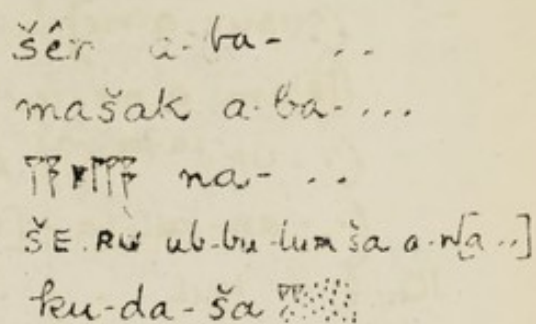 šêr a-ba- . .
mašak a-ba- . . .
na- . .
ŠE.RÙ ub-bu-lum ša a-na . . ]
ku-da-ša